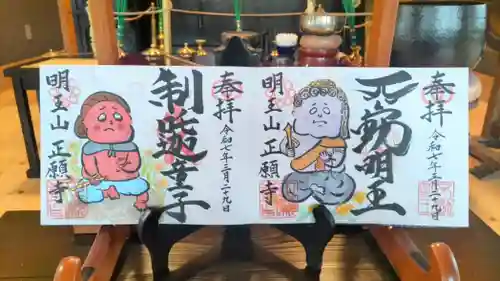 奉拝
令和七年三月二十九日
不動明王
明王山 正願寺
奉拝
令和七年三月二十九日
童子
明王山 正願寺